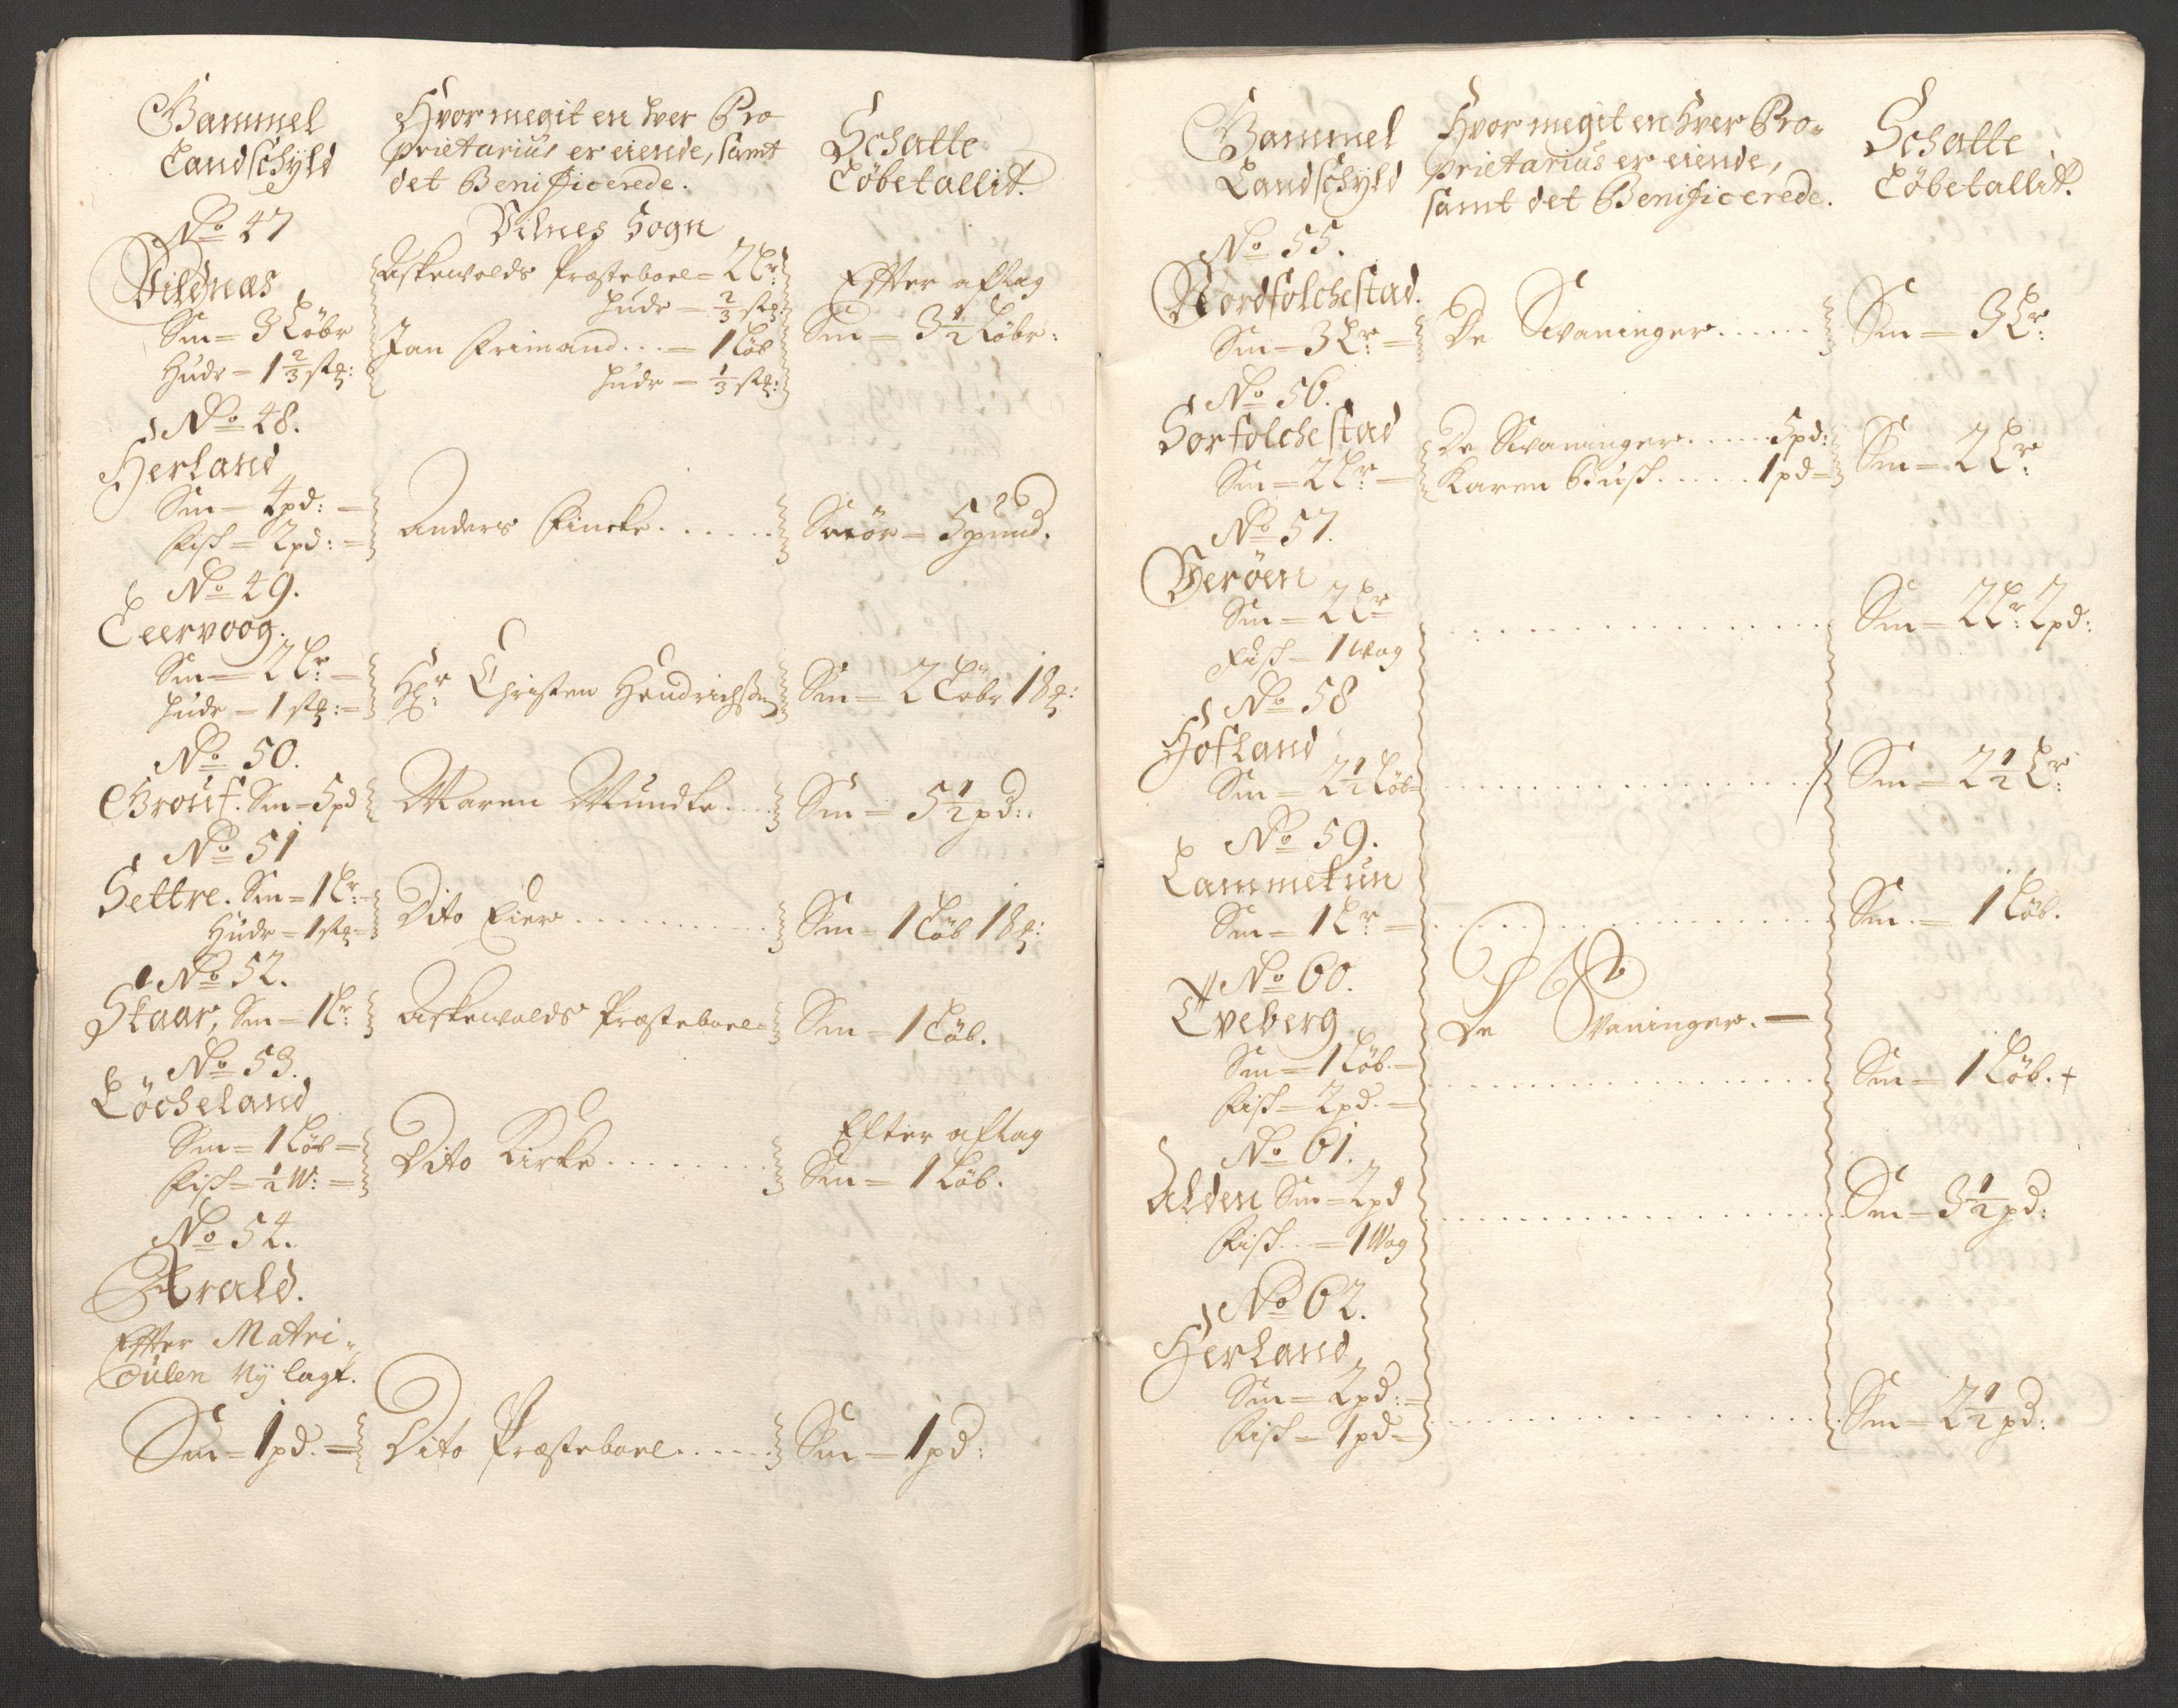 Gammel
Landschyld
Hvor megit en hver Pro
prietarius er eiende, samt
det Benificerede.
Schatte
Løbetallit
Vilnes Sogn
No 47
Vildnæs
Sm = 3 Løbr
Hudr = 1 2/3 stk:
Askevolds Præsteboel = 2 Lr:
Hudr = 2/3 stk:
Jan Frimand . . . = 1 Løb
Hudr = 1/3 stk:
Effter aftag
Sm = 3 1/2 Løbr:
No 48.
Herland
Sm = 4 pd: =
Fisk = 2 pd: =
Anders Fincke . . . . . .
Smør = 5 pund.
No 49.
Leervoog.
Sm = 2 Lr: =
Hudr = 1 stk: =
Hr: Christen Hendrichsen
Sm = 2 Løbr 18 :
No 50.
Grouf. Sm = 5 pd
Maren Mundte . . .
Sm = 5 1/2 pd:
No 51
Settre. Sm = 1 Lr:
Hudr = 1 stk =
Dito Eier . . . . . . . . . .
Sm = 1 Løb 18 :
No 52.
Staar, Sm = 1 Lr:
Askevolds Præsteboel =
Sm = 1 Løb.
No 53.
Løcheland
Sm = 1 Løb =
Fisk = 1/2 W: =
Dito Kirke . . . . . . . .
Efter aftag
Sm = 1 Løb.
No 54.
Arald.
Effter Matri-
culen Ny lagt.
Sm = 1 pd. =
Dito Præsteboel . . . . .
Sm = 1 pd:
Gammel
Landschyld
Hvor megit en hver Pro-
prietarius er eiende,
samt det Benificerede.
Schatte
Løbetallit.
No 55.
Nordfolchestad.
Sm = 3 Lr: =
De Svaninger . . . . . .
Sm = 3 Lr:
No 56.
Sorfolchestad
Sm = 2 Lr: =
De Svaninger . . . . . 5 pd:
Karen Busk . . . . . 1 pd =
Sm = 2 Lr:
No 57.
Verøen
Sm = 2 Lr
Fisk = 1 Wog
Sm = 2 Lr: 2 pd:
No 58
Hofland
Sm = 2 1/2 Løb =
Sm = 2 1/2 Lr:
No 59.
Lammetun
Sm = 1 Lr =
Sm = 1 Løb.
No 60.
Tveberg
Sm = 1 Løb. =
Fisk = 2 pd. =
De Svaninger. —
Sm = 1 Løb. +
No 61.
Alden Sm = 2 pd
Fisk . . = 1 Wog
Sm = 3 1/2 pd:
No 62.
Herland
Sm = 2 pd: =
Fisk = 1 pd =
Sm = 2 1/2 pd: